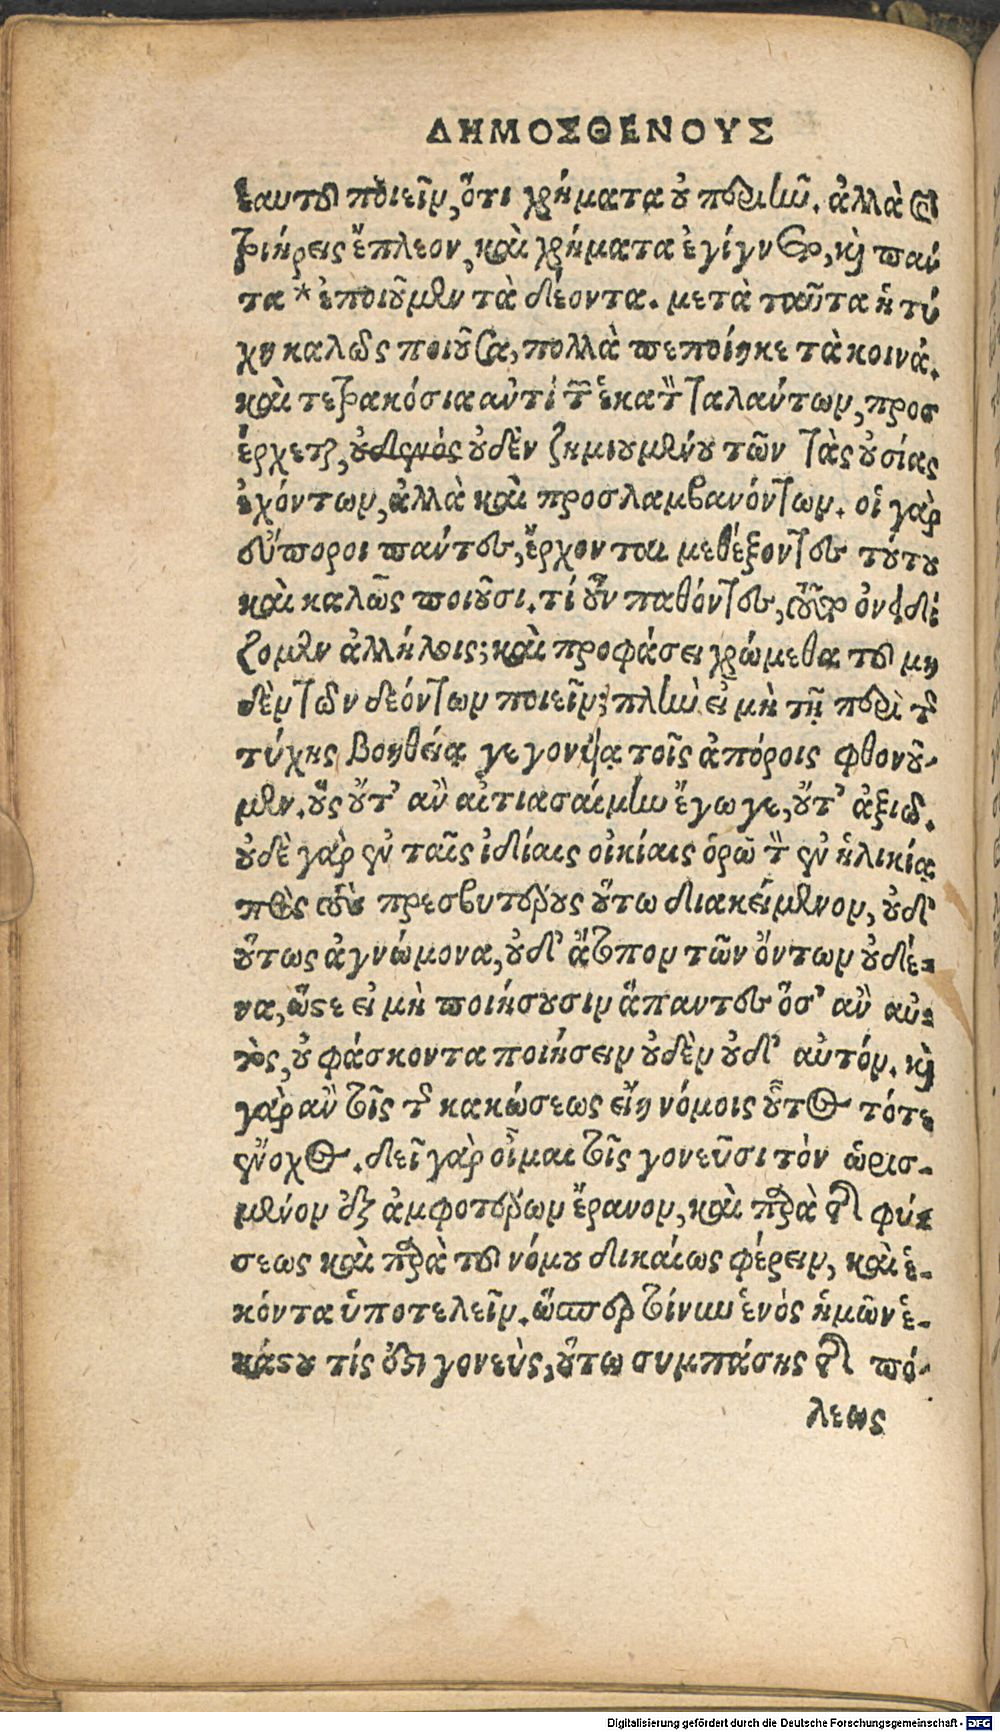 ΔΗΜΟΣΘΕΝΟΥΣ
ἑαυτοῦ ποιεῖν, ὅτι χρήματα οὐ περιῆν. ἀλλὰ καὶ
τριήρεις ἔπλεον, καὶ χρήματα ἐγίγνετο, καὶ πάν
τα * ἐποιοῦμεν τὰ δέοντα. μετὰ ταῦτα ἡ τύ
χη καλῶς ποιοῦσα, πολλὰ πεποίηκε τὰ κοινά.
καὶ τετρακόσια ἀντὶ τῶν ἑκατὸν ταλάντων, προσ
έρχεται, οὐδενὸς οὐδὲν ζημιουμένου τῶν τὰς οὐσίας
ἐχόντων, ἀλλὰ καὶ προσλαμβανόντων. οἱ γὰρ
εὔποροι πάντες, ἔρχονται μεθέξοντες τούτου
καὶ καλῶς ποιοῦσι. τί οὖν παθόντες, τοῦτο ὀνειδί
ζομεν ἀλλήλοις; καὶ προφάσει χρώμεθα τοῦ μη
δὲν τῶν δεόντων ποιεῖν; πλὴν εἰ μὴ τῇ παρὰ τῆς
τύχης βοηθείᾳ γεγονυίᾳ τοῖς ἀπόροις φθονοῦ-
μεν. οὓς οὔτ' ἂν αἰτιασαίμην ἔγωγε, οὔτ' ἀξιῶ.
οὐδὲ γὰρ ἐν ταῖς ἰδίαις οἰκίαις ὁρῶ τὸν ἐν ἡλικίᾳ
πρὸς τοὺς πρεσβυτέρους οὕτω διακείμενον, οὐδ'
οὕτως ἀγνώμονα, οὐδ' ἄτοπον τῶν ὄντων οὐδέ-
να, ὥστε εἰ μὴ ποιήσουσιν ἅπαντες ὅσ' ἂν αὐ-
τὸς, οὐ φάσκοντα ποιήσειν οὐδὲν οὐδ' αὐτόν. καὶ
γὰρ ἂν τοῖς τῆς κακώσεως εἴη νόμοις οὗτος τότε
ἔνοχος. δεῖ γὰρ οἶμαι τοῖς γονεῦσι τὸν ὡρισ-
μένον ἐξ ἀμφοτέρων ἔρανον, καὶ παρὰ τῆς φύ-
σεως καὶ παρὰ τοῦ νόμου δικαίως φέρειν, καὶ ἑ-
κόντα ὑποτελεῖν. ὥσπερ τοίνυν ἑνὸς ἡμῶν ἑ-
κάστου τίς ἐστι γονεὺς, οὕτω συμπάσης τῆς πό-
λεως
Digitalisierung gefördert durch die Deutsche Forschungsgemeinschaft - DFG